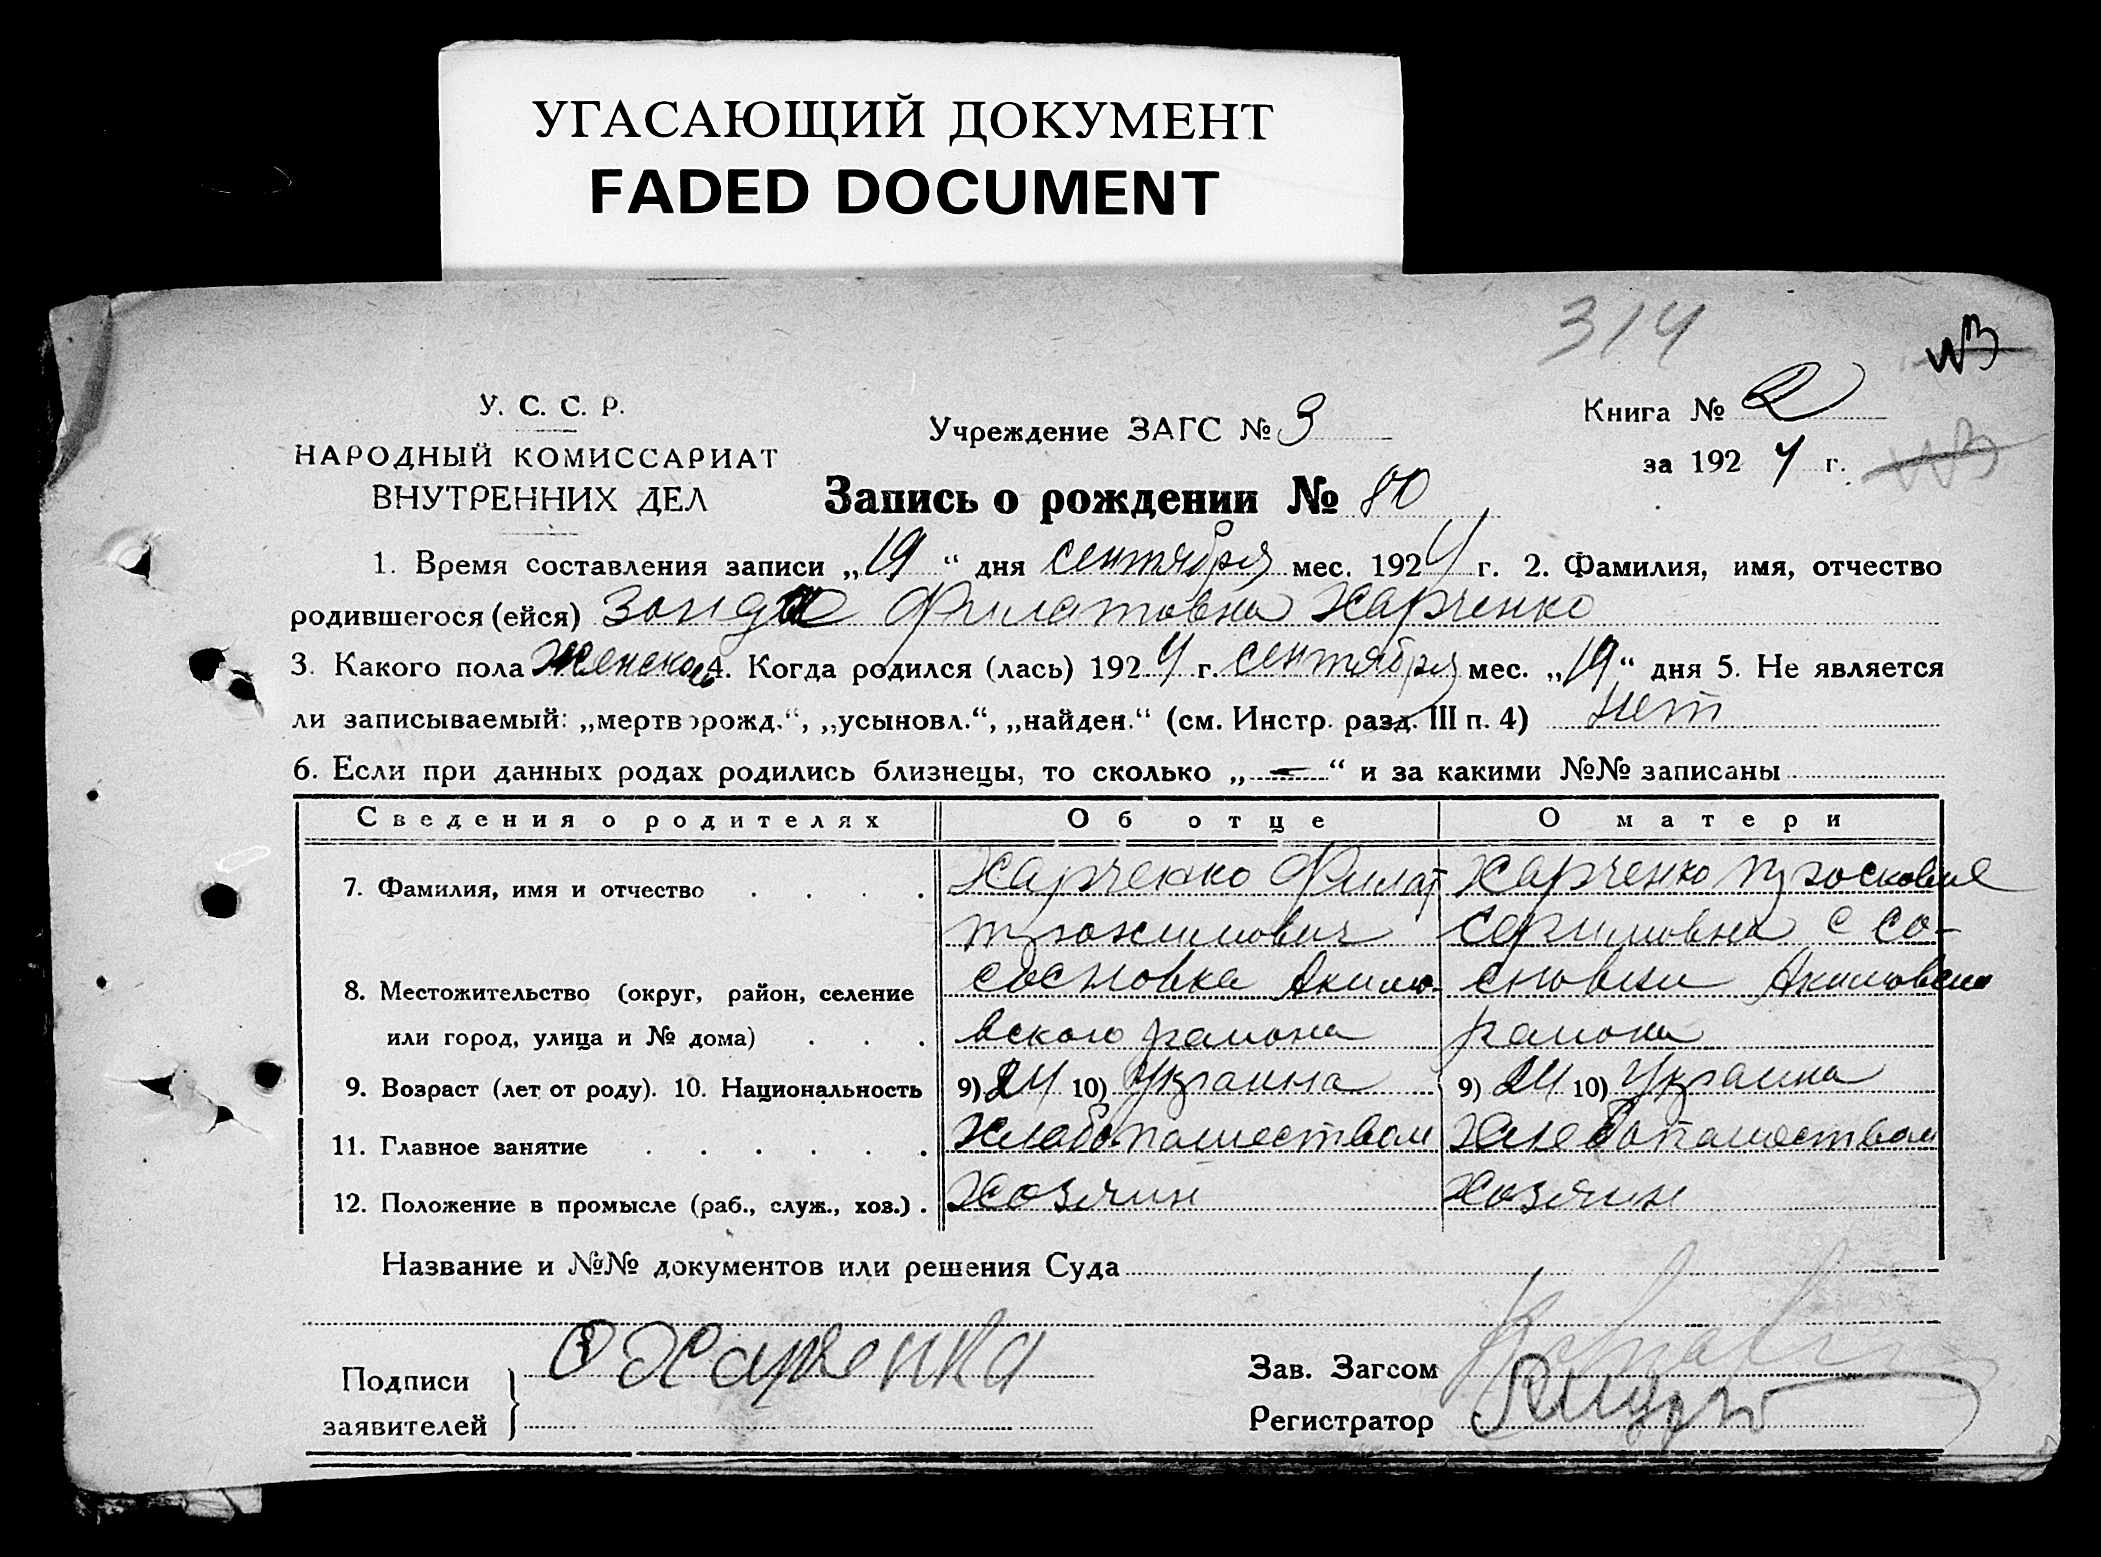 УГАСАЮЩИЙ ДОКУМЕНТ
FADED DOCUMENT
314
У. С. С. Р.
НАРОДНЫЙ КОМИССАРИАТ
ВНУТРЕННИХ ДЕЛ
Учреждение ЗАГС № 3
Книга № 2
за 1924 г.
Запись о рождении № 80
1. Время составления записи „19“ дня сентября мес. 1924 г. 2. Фамилия, имя, отчество
родившегося (ейся) Филатовна Харченко
3. Какого пола Женскою 4. Когда родился (лась) 1924 г. сентября мес. „19“ дня 5. Не является
ли записываемый: „мертворожд.“, „усыновл.“, „найден.“ (см. Инстр. разд. III п. 4) нет
6. Если при данных родах родились близнецы, то сколько „—“ и за какими №№ записаны
Сведения о родителях Об отце О матери
7. Фамилия, имя и отчество . . . . Харченко Филат Харченко
с Со-
8. Местожительство (округ, район, селение Сосновка Акимо- сновки Акимовски
или город, улица и № дома) . . . вского района района
9. Возраст (лет от роду). 10. Национальность 9) 24 10) Украина 9) 24 10) Украина
11. Главное занятие . . . . . . Хлабопашеством Хлебопашеством
12. Положение в промысле (раб., служ., хоз.) . Хозяин Хозяин
Название и №№ документов или решения Суда
Подписи
заявителей
Зав. Загсом
Регистратор